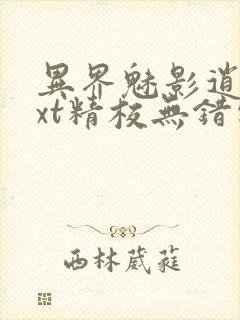 異界魅影逍
xt精校無錯
西林葳蕤